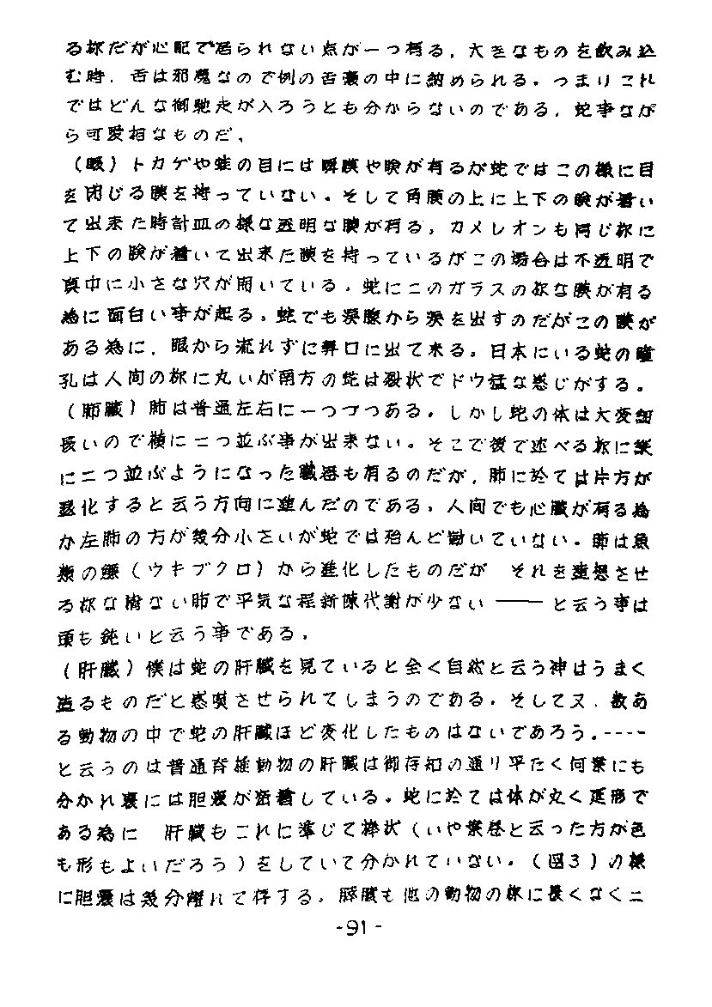 る様だが心配で居られない点が一つ有る。大きなものを飲み込
む時、舌は邪魔なので例の舌嚢の中に納められる。つまりこれ
ではどんな御馳走が入ろうとも分からないのである。蛇事なが
ら可愛相なものだ。
(眼)トカゲや蛙の目には瞬膜や瞼が有るが蛇ではこの様に目
を閉じる膜を持っていない。そして角膜の上に上下の瞼が着い
て出来た時計皿の様な透明な膜が有る。カメレオンも同じ様に
上下の瞼が着いて出来た膜を持っているがこの場合は不透明で
真中に小さな穴が開いている。蛇にこのガラスの様な膜が有る
為に面白い事が起る。蛇でも涙腺から涙を出すのだがこの膜が
ある為に、眼から流れずに鼻口に出て来る。日本にいる蛇の瞳
孔は人間の様に丸いが南方の蛇は裂状でドウ猛な感じがする。
(肺臓)肺は普通左右に一つづつある。しかし蛇の体は大変細
長いので横に二つ並ぶ事が出来ない。そこで後で述べる様に縦
に二つ並ぶようになった臓器も有るのだが、肺に於ては片方が
退化すると云う方向に進んだのである。人間でも心臓が有る為
か左肺の方が幾分小さいが蛇では殆んど働いていない。肺は魚
類の鰾(ウキブクロ)から進化したものだが それを連想させ
る様な備ない肺で平気な程新陳代謝が少ない ―― と云う事は
頭も鈍いと云う事である。
(肝臓)僕は蛇の肝臓を見ていると全く自然と云う神はうまく
造るものだと感嘆させられてしまうのである。そして又、数あ
る動物の中で蛇の肝臓ほど変化したものはないであろう。----
と云うのは普通脊椎動物の肝臓は御存知の通り平たく何葉にも
分かれ裏には胆嚢が密着している。蛇に於ては体が丸く延形で
ある為に 肝臓もこれに準じて棒状(いや葉巻と云った方が色
も形もよいだろう)をしていて分かれていない。(図3)の様
に胆嚢は幾分離れて存する。膵臓も他の動物の様に長くなく二
-91-